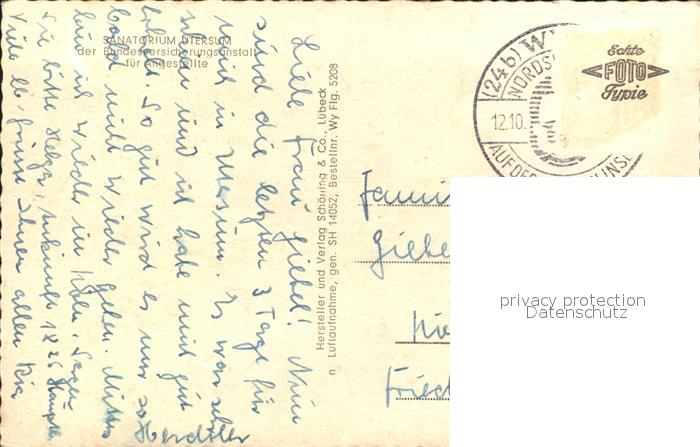 SANATORIUM UTERSUM
der Bundesversicherungsanstalt
für Angestellte
Liebe Frau Giebel! Nun
sind die letzten 3 Tage für
mich in Wesum. Es war sehr
schön und ich habe mich gut
erholt. So gut wird es uns so
bald nicht wieder gehen.
bin ich wieder in Köln.
Sie bitte Helga, Ankunft 18 25
Viele lb. Grüsse Ihnen allen
Hersteller und Verlag Schöning & Co., Lübeck
n Luftaufnahme, gen. SH 14052, Bestellnr. Wy Flg. 5208
(24b) W
NORDS
12.10.
AUF DER INSE
Echte
FOTO
Typie
Famil
Giebe
Fried
privacy protection
Datenschutz